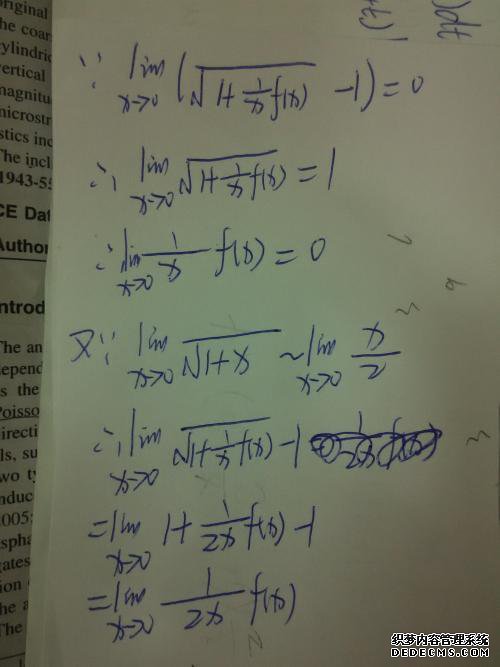 original
the coar
cylindric
vertical
magnitu
microstr
stics inc
The incl
1943-55
CE Dat
Author
ntrod
The an
depend
s the
Poisso
directi
ls, su
two ty
nduc
2005;
spha
gates
the a
The
dt
∵ lim x→0 (√(1+1/x f(x)) -1)=0
∴ lim x→0 √(1+1/x f(x)) = 1
∴ lim x→0 1/x f(x) = 0
又∵ lim x→0 √(1+x) ~ lim x→0 x/2
∴ lim x→0 √(1+1/x f(x)) -1
= lim x→0 1+ 1/2x f(x) -1
= lim x→0 1/2x f(x)
织梦内容管理系统
DEDECMS.COM